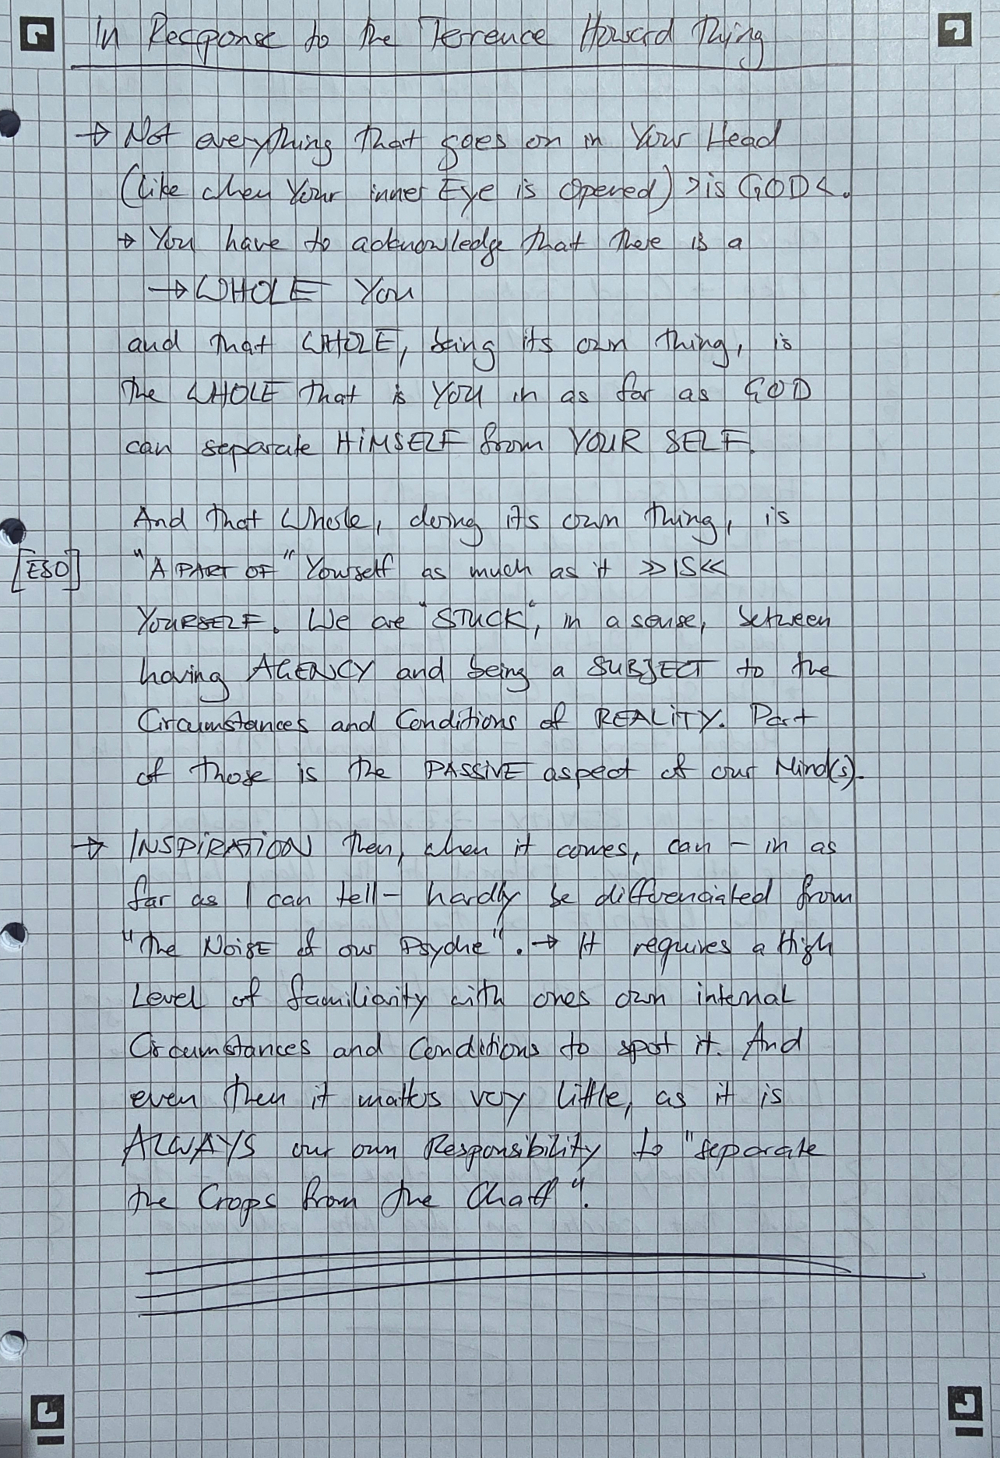 In Response to the Terrence Howard Thing
→ Not everything that goes on in Your Head
(like when Your inner Eye is Opened) >is GOD<.
→ You have to acknowledge that there is a
→ WHOLE You
and that WHOLE, being its own thing, is
the WHOLE that is YOU in as far as GOD
can separate HiMSELF from YOUR SELF.
And that Whole, doing its own thing, is
[ESO] "A PART OF" Yourself as much as it >>IS<<
YOURSELF. We are "STUCK", in a sense, between
having AGENCY and being a SUBJECT to the
Circumstances and Conditions of REALiTY. Part
of those is the PASSiVE aspect of our Mind(s).
→ INSPiRATiON then, when it comes, can – in as
far as I can tell – hardly be differenciated from
"the NOiSE of our Psyche". → It requires a High
Level of familiarity with ones own internal
Circumstances and Conditions to spot it. And
even then it matters very little, as it is
ALWAYS our own Responsibility to "separate
the Crops from the Chaff".